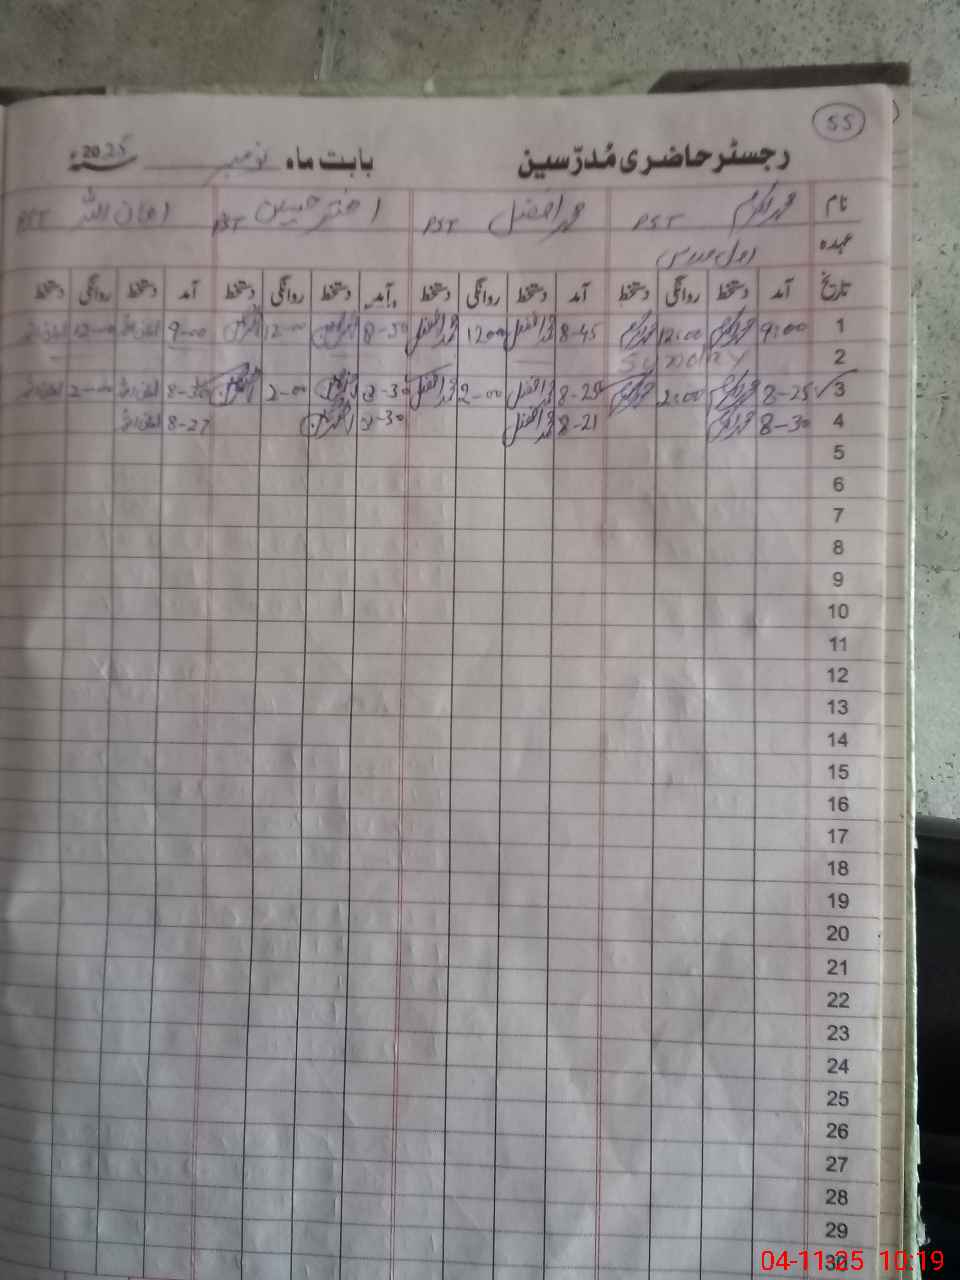 55
رجسٹر حاضری مُدرّسین بابت ماہ نومبر 2025ء
نام محمد اکرم PST محمد افضل PST اختر حسین PST امان اللہ PST
عہدہ اول مدرس
تاریخ آمد دستخط روانگی دستخط آمد دستخط روانگی دستخط آمد دستخط روانگی دستخط آمد دستخط روانگی دستخط
1 9:00 12:00 8-45 محمد افضل 1200 محمد افضل 8-50 12-00 9-00 12-00
2 Sunday
3 8-25 2:00 8-25 محمد افضل 2-00 محمد افضل 8-30 2-00 8-30 2-00
4 8-30 8-21 محمد افضل 8-30 8-27
5
6
7
8
9
10
11
12
13
14
15
16
17
18
19
20
21
22
23
24
25
26
27
28
29
30
04-11-25 10:19